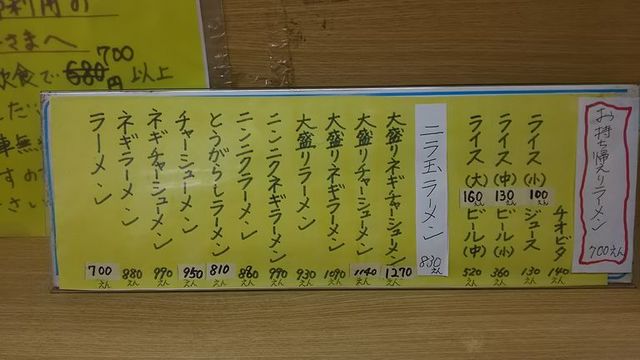 お持ち帰りラーメン 700えん
チオビタ 140えん
ライス(小) 100えん
ジュース 130えん
ライス(中) 130えん
ビール(小) 360えん
ライス(大) 160えん
ビール(中) 520えん
ニラ玉ラーメン 830えん
大盛リネギチャーシューメン 1270えん
大盛リチャーシューメン 1140えん
大盛リネギラーメン 1090えん
大盛リラーメン 930えん
ニンニクネギラーメン 990えん
ニンニクラーメン えん
とうがらしラーメン 810えん
チャーシューメン 950えん
ネギチャーシューメン 990えん
ネギラーメン 880えん
ラーメン 700えん
利用の
さまへ
飲食で 680 700円以上
した
車無
すの
さい